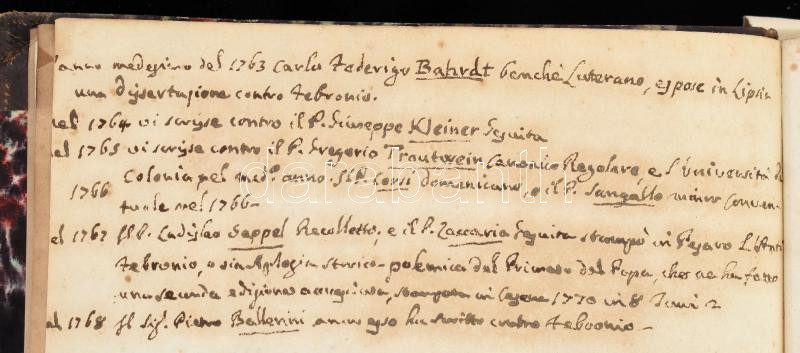 l'anno medesimo del 1763 Carlo Federigo Bahrdt benchè Luterano, espose in Lipsia
una dissertazione contro Febronio.
nel 1764 vi scrisse contro il P. Giuseppe Kleiner Gesuita
nel 1765 vi scrisse contro il P. Gregorio Trautwein Canonico Regolare, e l'Università di
Colonia nel med.º anno. Il P. Corsi Domenicano, e il P. Sangallo minor Conven-
1766
tuale nel 1766-
el 1767 Il P. Ladislao Seppel Recolletto, e il P. Zaccaria Gesuita stampò in Pesaro L'Anti
Febronio, o sia Apologia storico-polemica del Primato del Papa, che ne ha fatto
una seconda edizione in Cesena 1770 in 8 Tomi 2
al 1768 Il Sig. Pietro Ballerini, anch'esso ha scritto contro Febronio -
darabanth